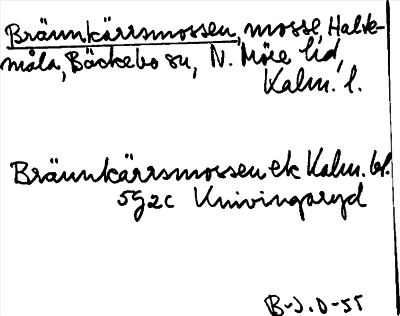 Brännkärrsmossen, mosse, Halke-
måla, Bäckebo sn, N. Möre hd,
Kalm. l.
Brännkärrsmossen ek Kalm. bl.
5g2c Knivingaryd
B-J. O-55